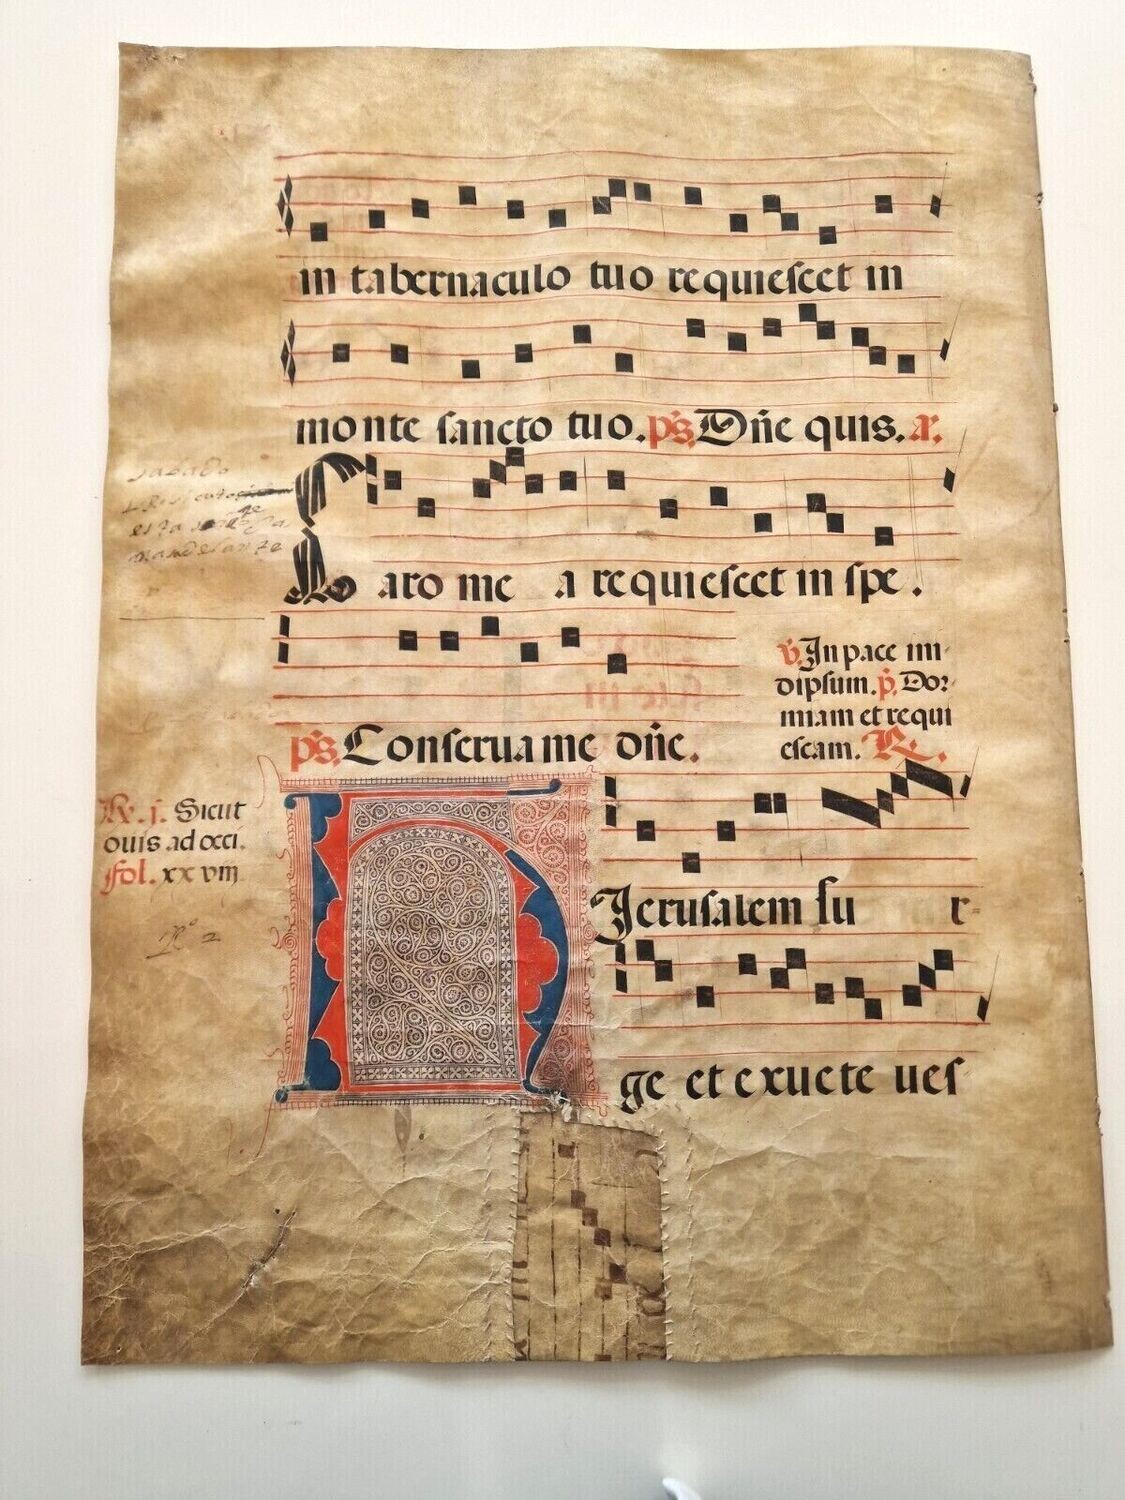 in tabernaculo tuo requiescet in
monte sancto tuo. ps. Dñe quis. a.
Caro me a requiescet in spe.
v. In pace im
dipsum. p. Dor
miam et requi
escam. R.
ps. Conserua me dñe.
R. j. Sicut
ouis ad occi.
fol. xxviij
Jerusalem su r-
ge et exuete ues